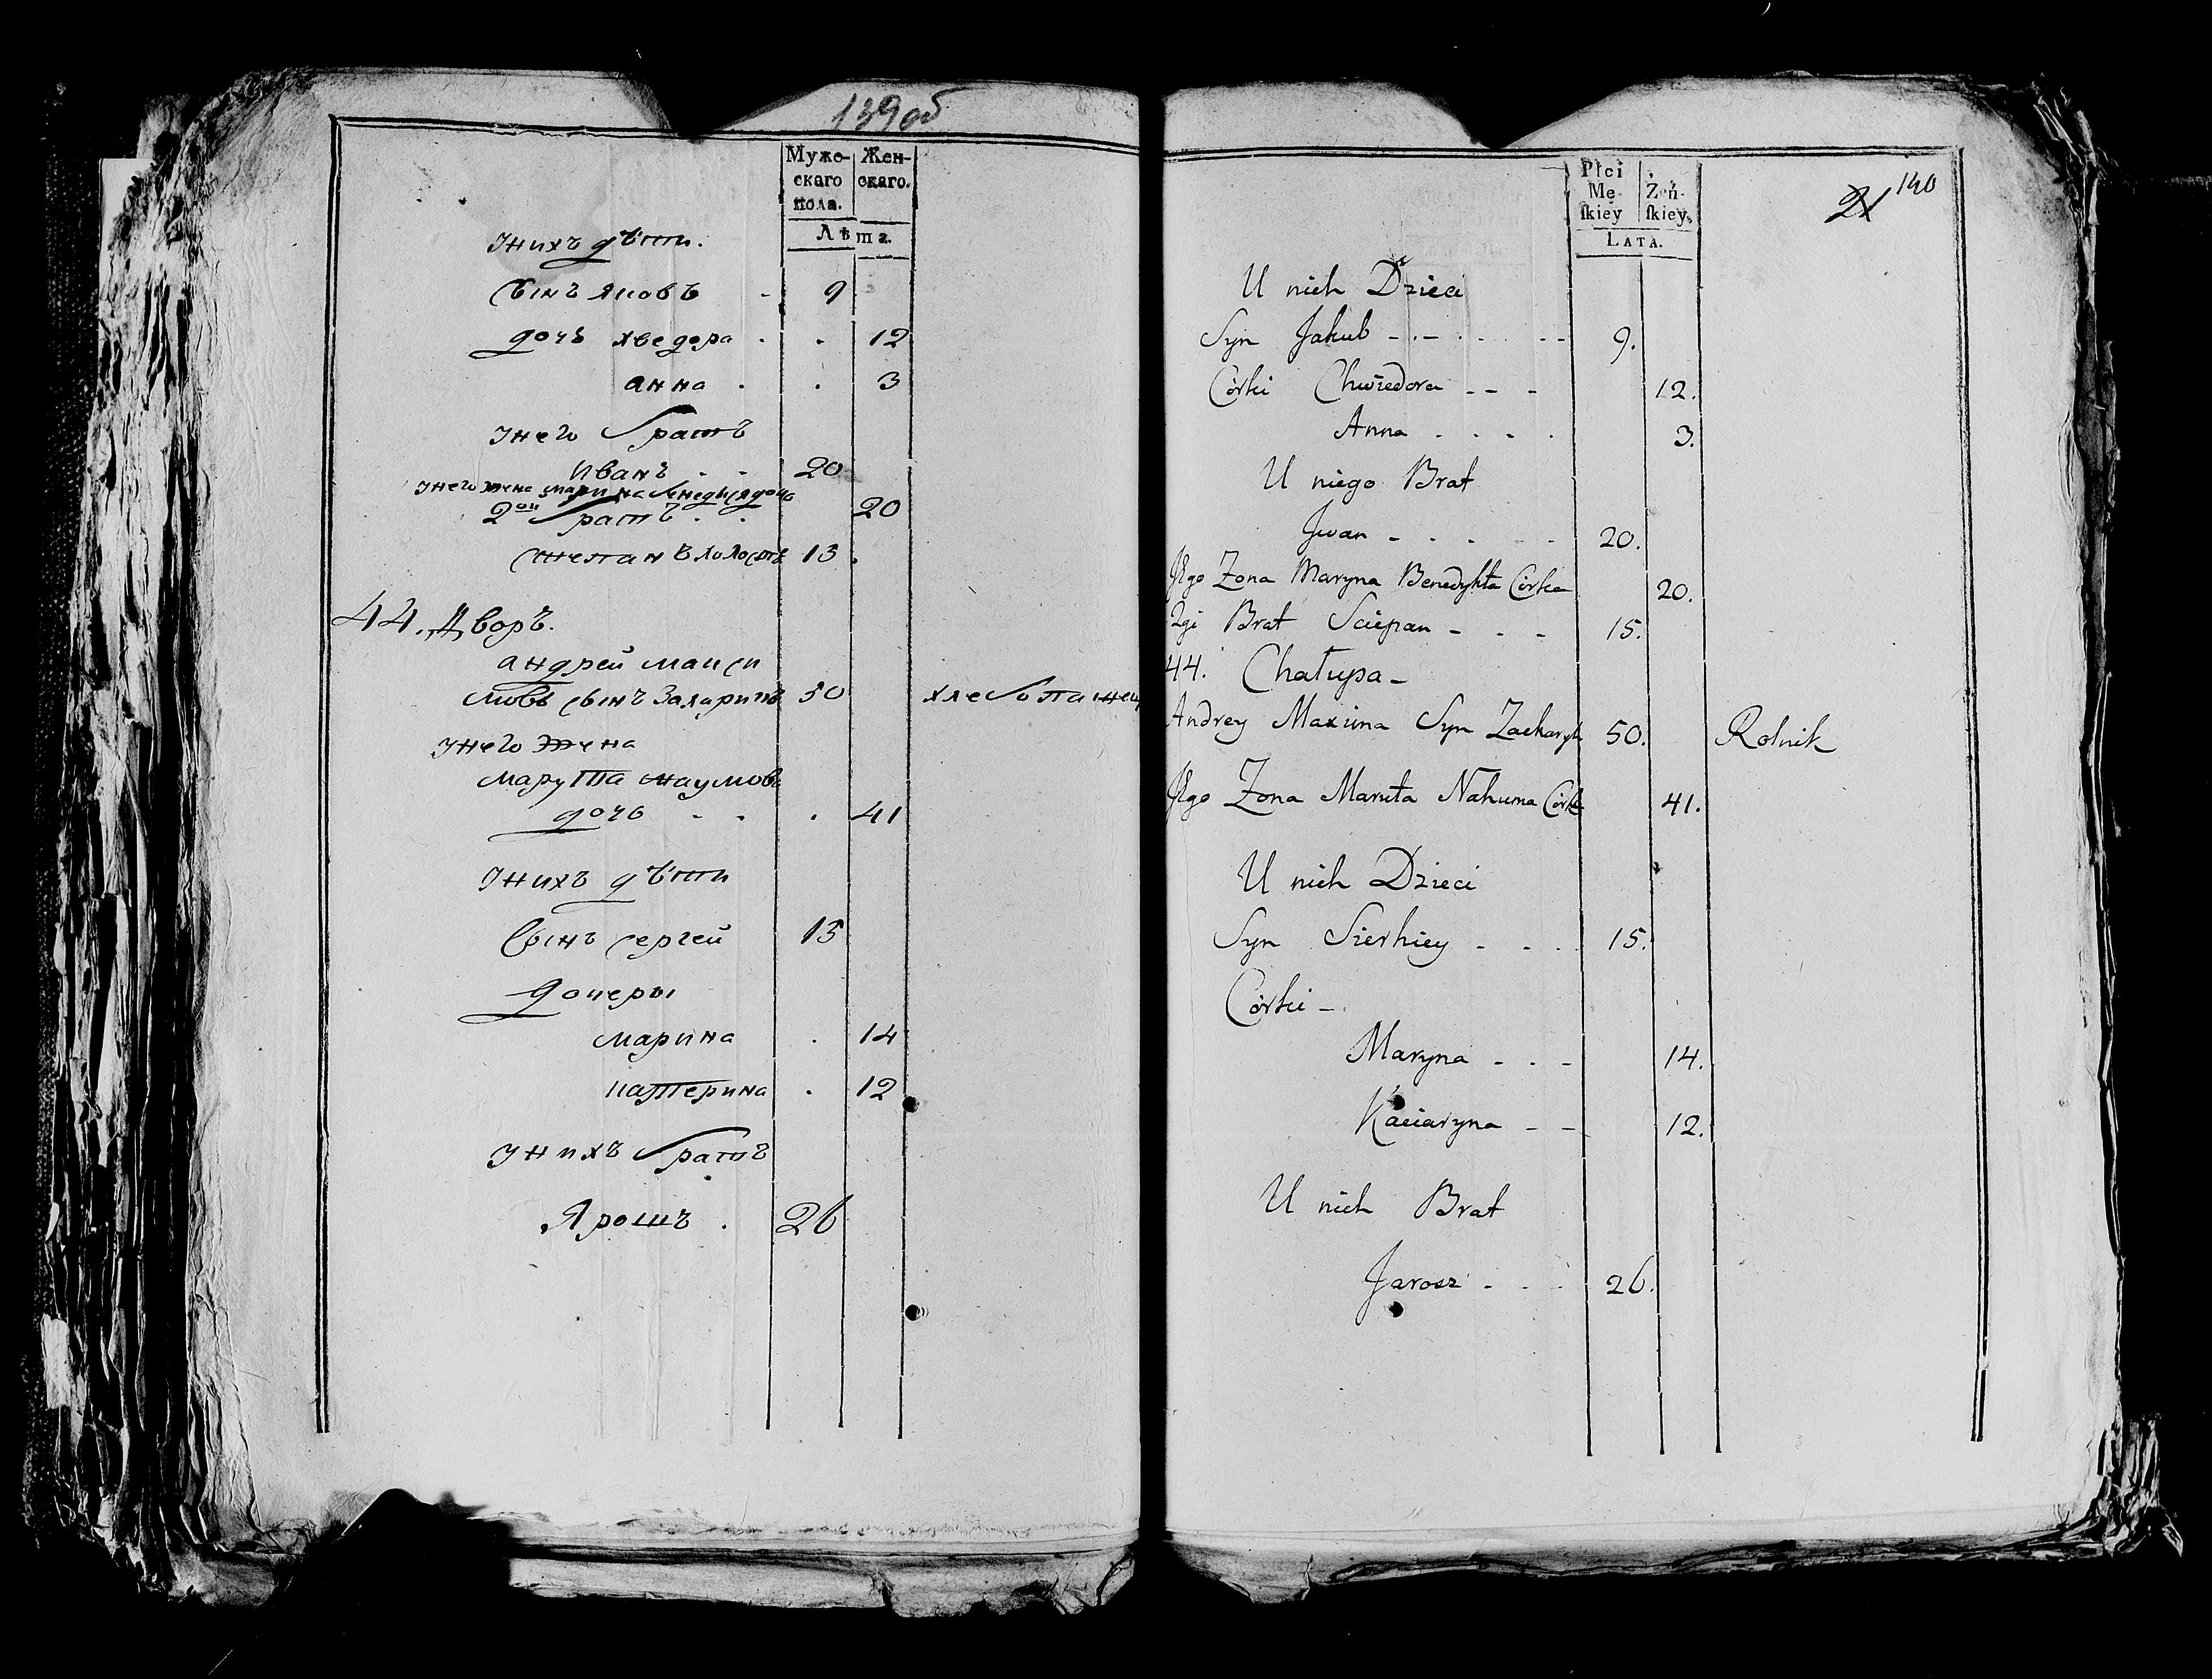 139 об
Муже-
скаго
пола.
Жен-
скаго.
Лѣта.
у нихъ дѣти.
Сынъ Яковъ - 9
дочь хведора . . 12
анна . . 3
у него братъ
Иванъ . . 20
у него жена марина бенедыя дочь
2ой братъ . . 20
степанъ холостъ 13 .
44. Дворъ.
андрей макси
мовъ сынъ Захаричъ 50 хлебопашец
у него жена
марута наумова
дочь . . . 41
у нихъ дѣти
Сынъ сергей 15
дочеры
марина . 14
катерина . 12
у нихъ братъ
Ярошъ . 26
Płci
Mę-
ſkiey
Żeń-
ſkiey.
LATA.
21 140
U nich Dzieci
Syn Jakub - . - . . . - - 9.
Córki Chwiedora - - - 12.
Anna . . . . 3.
U niego Brat
Jwan - . - . - - 20.
Jego Zona Maryna Benedykta Córka 20.
2gi Brat Sciepan - . - 15.
44. Chałupa -
Andrey Maxima Syn Zacharyk 50. Rolnik
Jego Zona Maruta Nahuma Córka 41.
U nich Dzieci
Syn Sierhiey - . . . 15.
Córki - .
Maryna - - - 14.
Kaciaryna - - 12.
U nich Brat
Jarosz - - - 26.